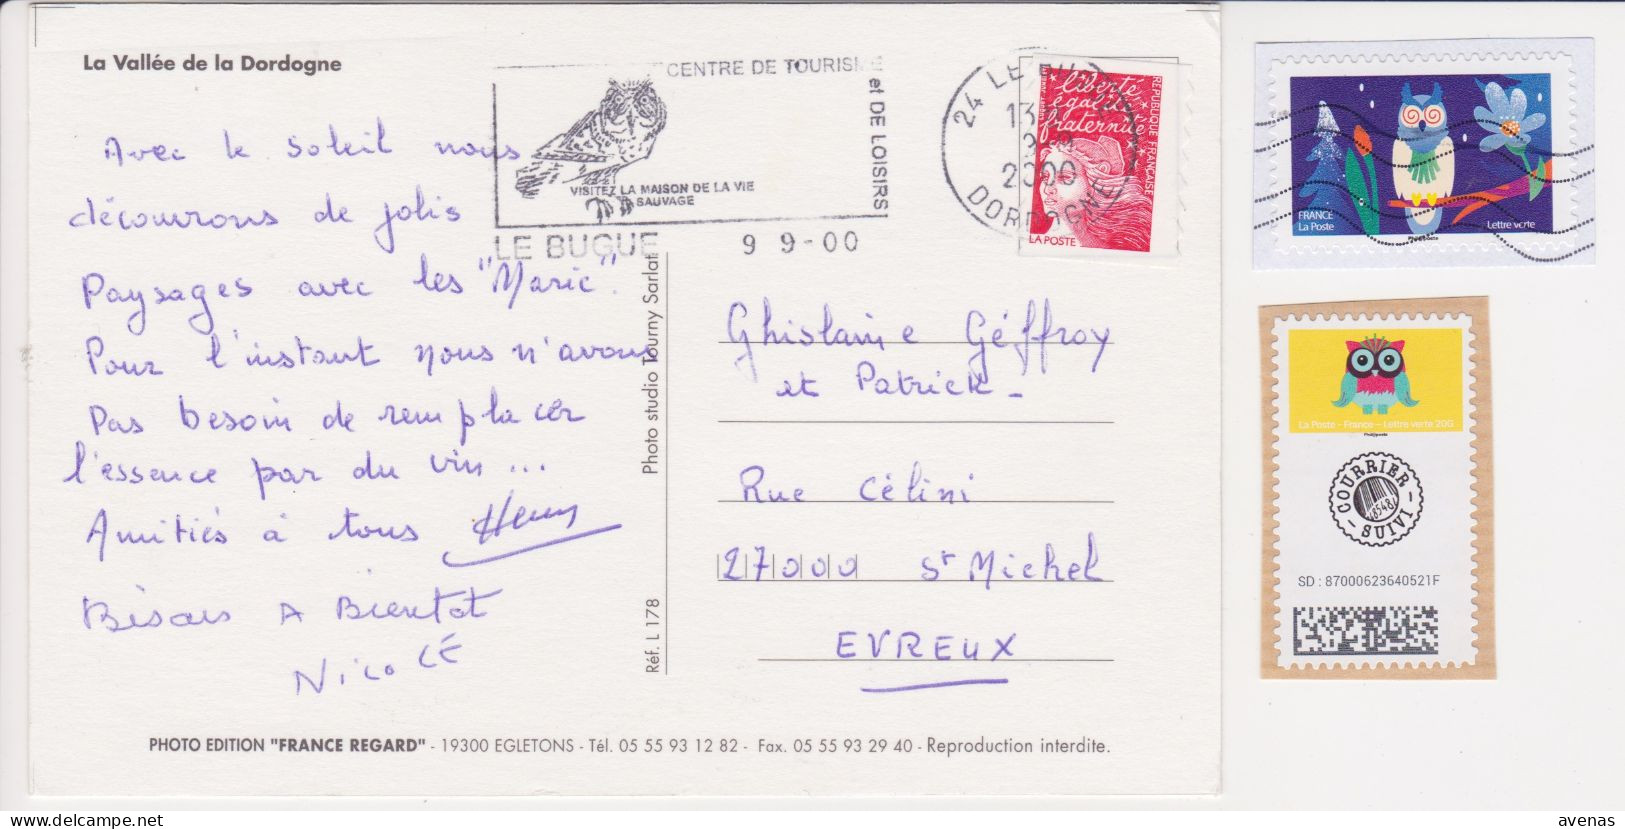 La Vallée de la Dordogne
CENTRE DE TOURISME
et DE LOISIRS
VISITEZ LA MAISON DE LA VIE
SAUVAGE
LE BUGUE
9 9-00
24 LE BUGUE
13
2000
DORDOGNE
liberté
égalité
fraternité
RÉPUBLIQUE FRANÇAISE
LA POSTE
Avec le soleil nous
découvrons de jolis
Paysages avec les "Marie".
Pour l'instant nous n'avons
Pas besoin de remplacer
l'essence par du vin ...
Amitiés à tous
Bisous A Bientot
NicoLE
Photo studio Tourny Sarlat
Réf. L 178
Ghislaine Géffroy
et Patrick -
Rue Célini
27000 St Michel
EVREUX
PHOTO EDITION "FRANCE REGARD" - 19300 EGLETONS - Tél. 05 55 93 12 82 - Fax. 05 55 93 29 40 - Reproduction interdite.
FRANCE
La Poste
Lettre verte
Phil@poste
La Poste - France - Lettre verte 20G
Phil@poste
COURRIER
48548
SUIVI
SD : 87000623640521F
avenas